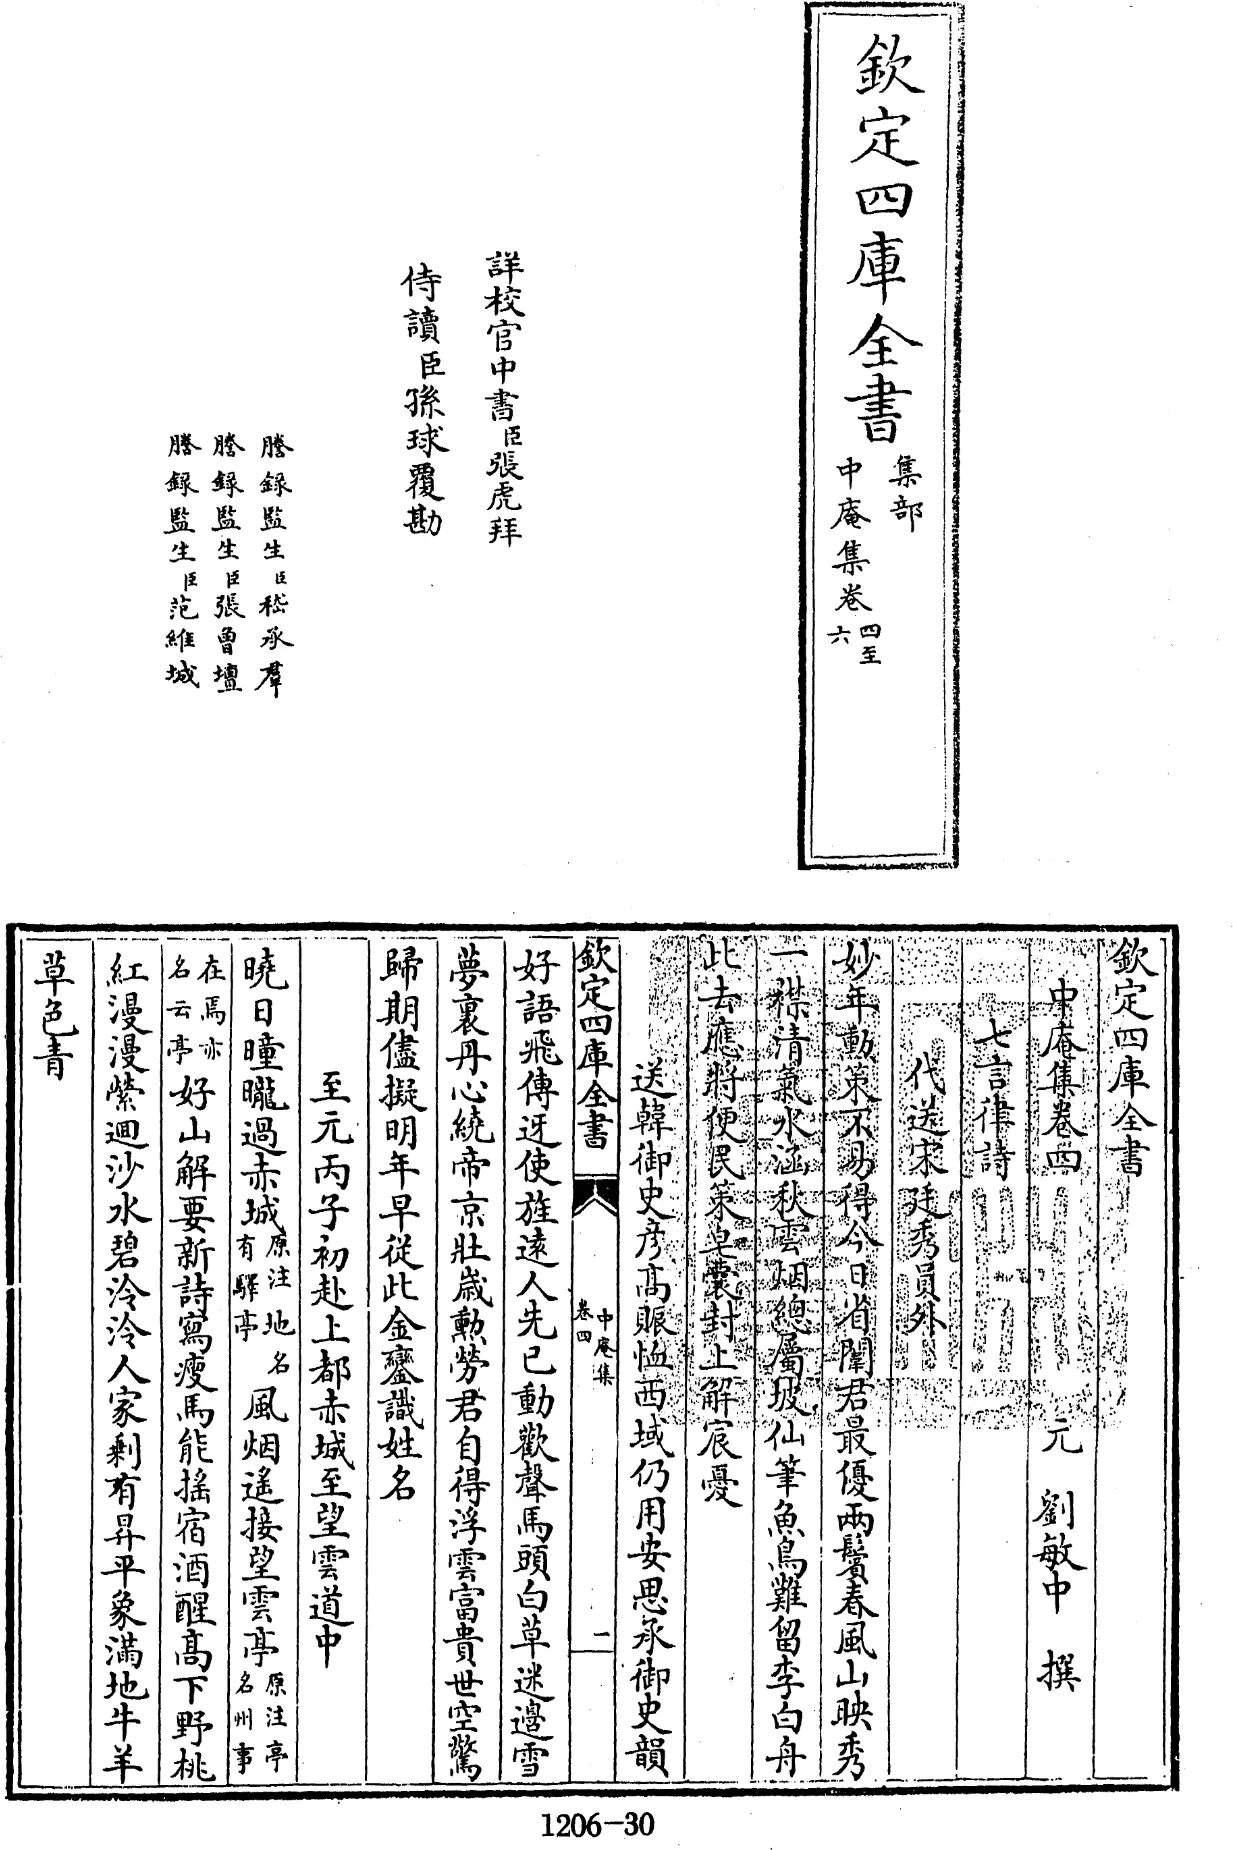 欽定四庫全書
集部
中庵集卷
四至
六
詳校官中書臣張虎拜
侍讀臣孫球覆勘
謄錄監生臣嵇承羣
謄錄監生臣張曾壇
謄錄監生臣范維城
欽定四庫全書
中庵集卷四 元 劉敏中 撰
七言律詩
代送宋廷秀員外
妙年動策不易得今日省闈君最優兩鬢春風山映秀
一襟清氣水涵秋雲烟總屬坡仙筆魚鳥難留李白舟
此去應將便民策皂囊封上解宸憂
送韓御史彦高賑恤西域仍用安思承御史韻
欽定四庫全書
中庵集
卷四
一
好語飛傳迓使旌遠人先已動歡聲馬頭白草迷邉雪
夢裏丹心繞帝京壯歲勲勞君自得浮雲富貴世空驚
歸期儘擬明年早從此金鑾識姓名
至元丙子初赴上都赤城至望雲道中
曉日曈曨過赤城原注地名有驛亭風烟遥接望雲亭原注亭名州事
在焉亦名云亭好山解要新詩寫瘦馬能摇宿酒醒高下野桃
紅漫漫縈迴沙水碧泠泠人家剩有昇平象滿地牛羊
草色青
1206-30